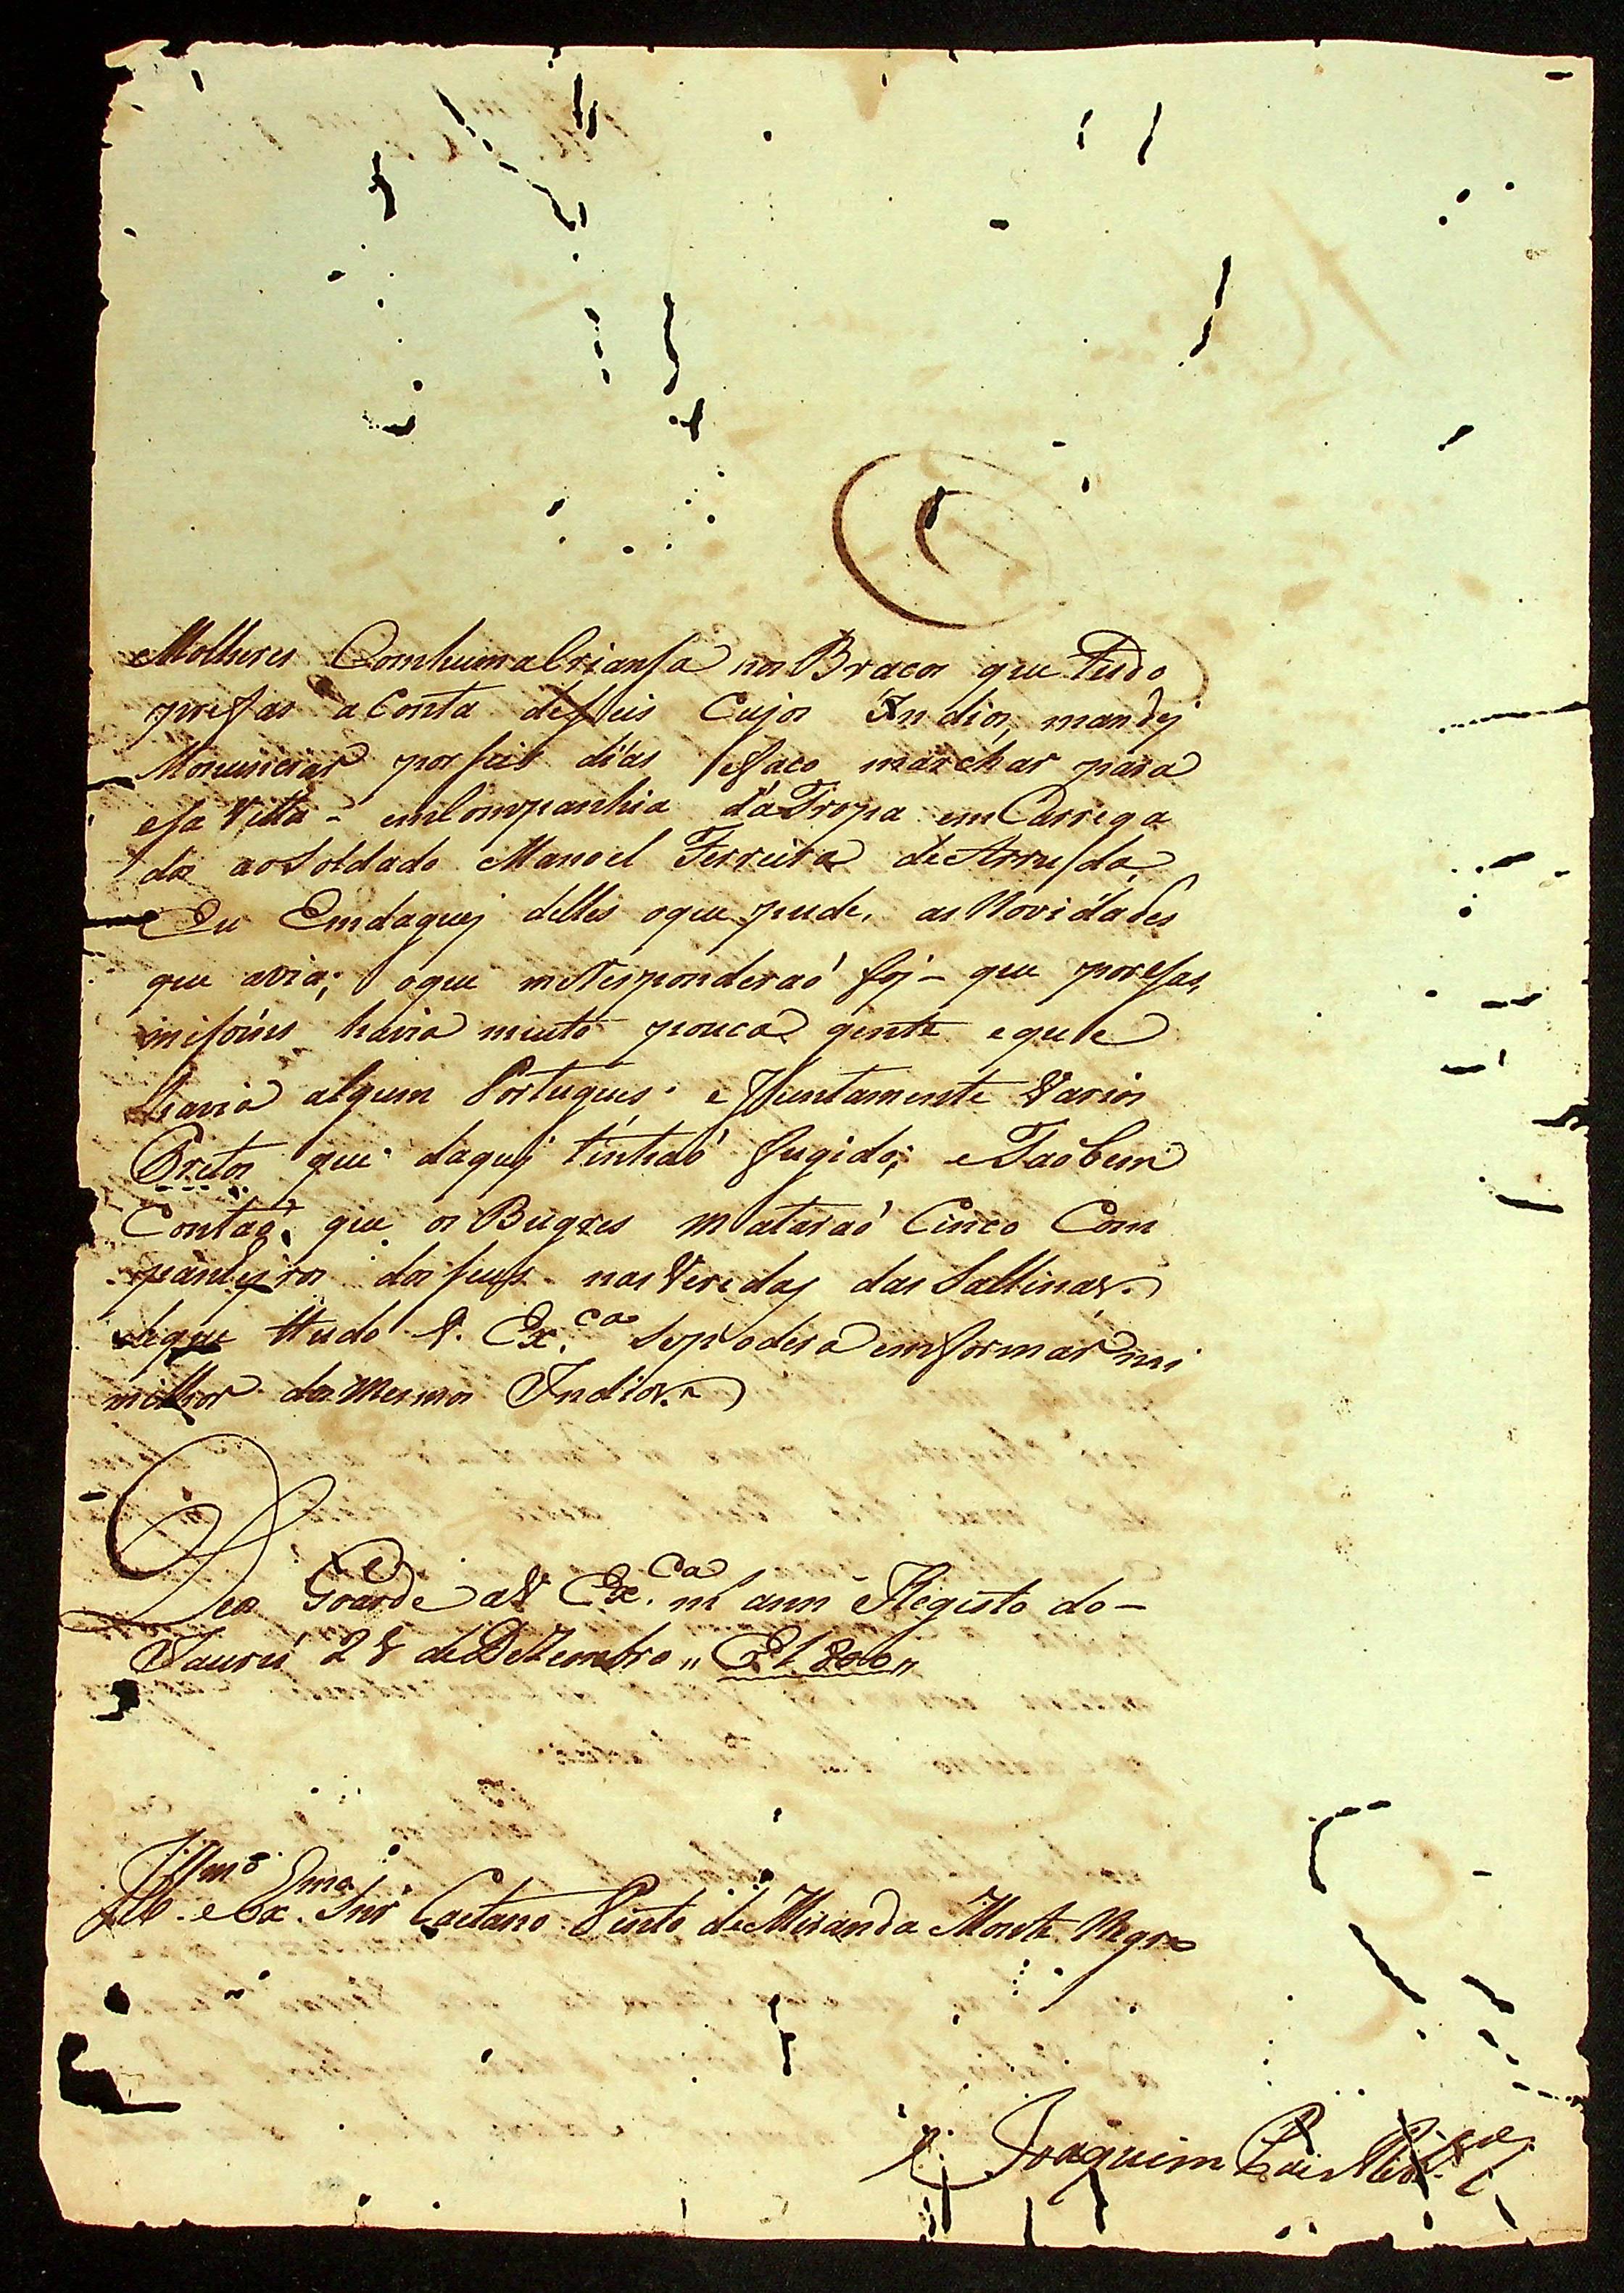 Molheres Comhuma Criansa nos Bracos que tudo
prefas a Conta deseis Cujos Indios, mandej
Monusiciar por seis dias efaco marchar para
esa Villa - em Companhia da Tropa em Carrega
dos ao Soldado Manoel Ferreira de Arruda,
Eu Emdaguej delles oque pude, as Novidades
que avia; oque me Responderaó foj - que por esas
misoins havia muito pouca gente e que
havia algum Portugues; e Juntamente Varios
Pretos que daquj tinhaó fugido; e Taóbem
Contaó que os Bugres Mataraó Cinco Com
panhejros dos seus nas Veredas das Sallinas.
do que ttudo V. Ex.ca Se poderá emformar mi
milhor dos Mesmos Indios.
Deos Goarde a V Ex.ca m. ann. Registo do -
Jaurú 28 de DeZembro „ E1800 „
Illmo. e Exmo. Snr Caetano Pinto de Miranda Monte Negro
Joaquim